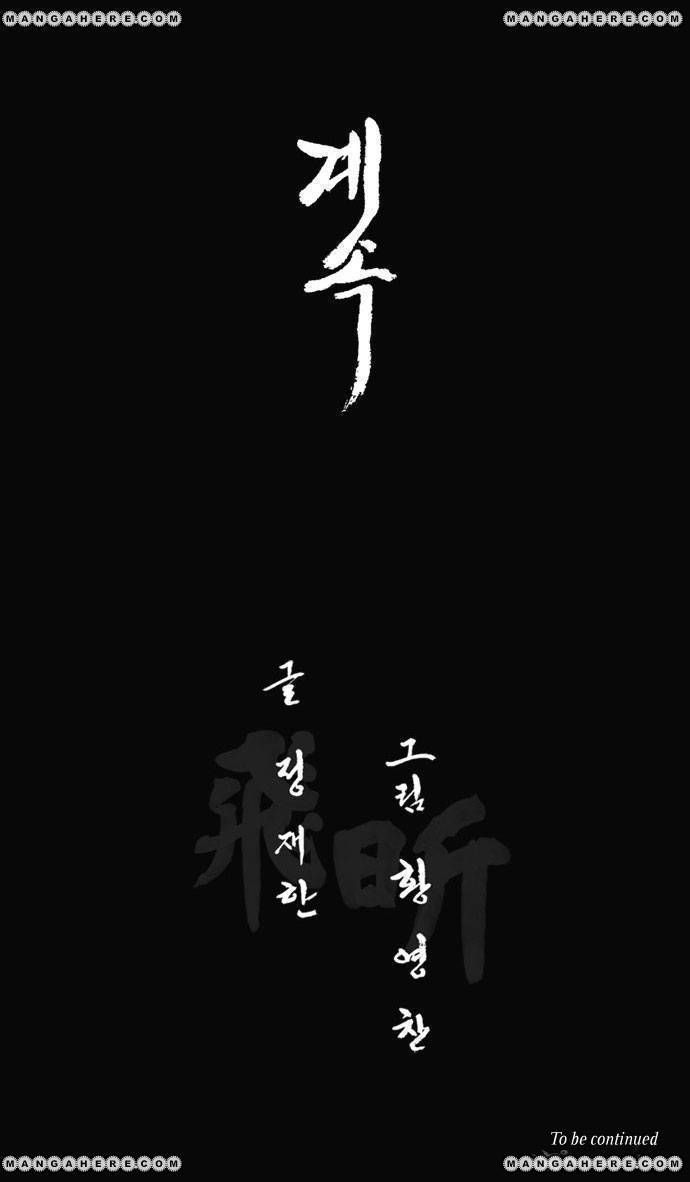 MANGAHERE.COM
MANGAHERE.COM
계속
글 정재한
그림 황영찬
飛昕
To be continued
MANGAHERE.COM
MANGAHERE.COM